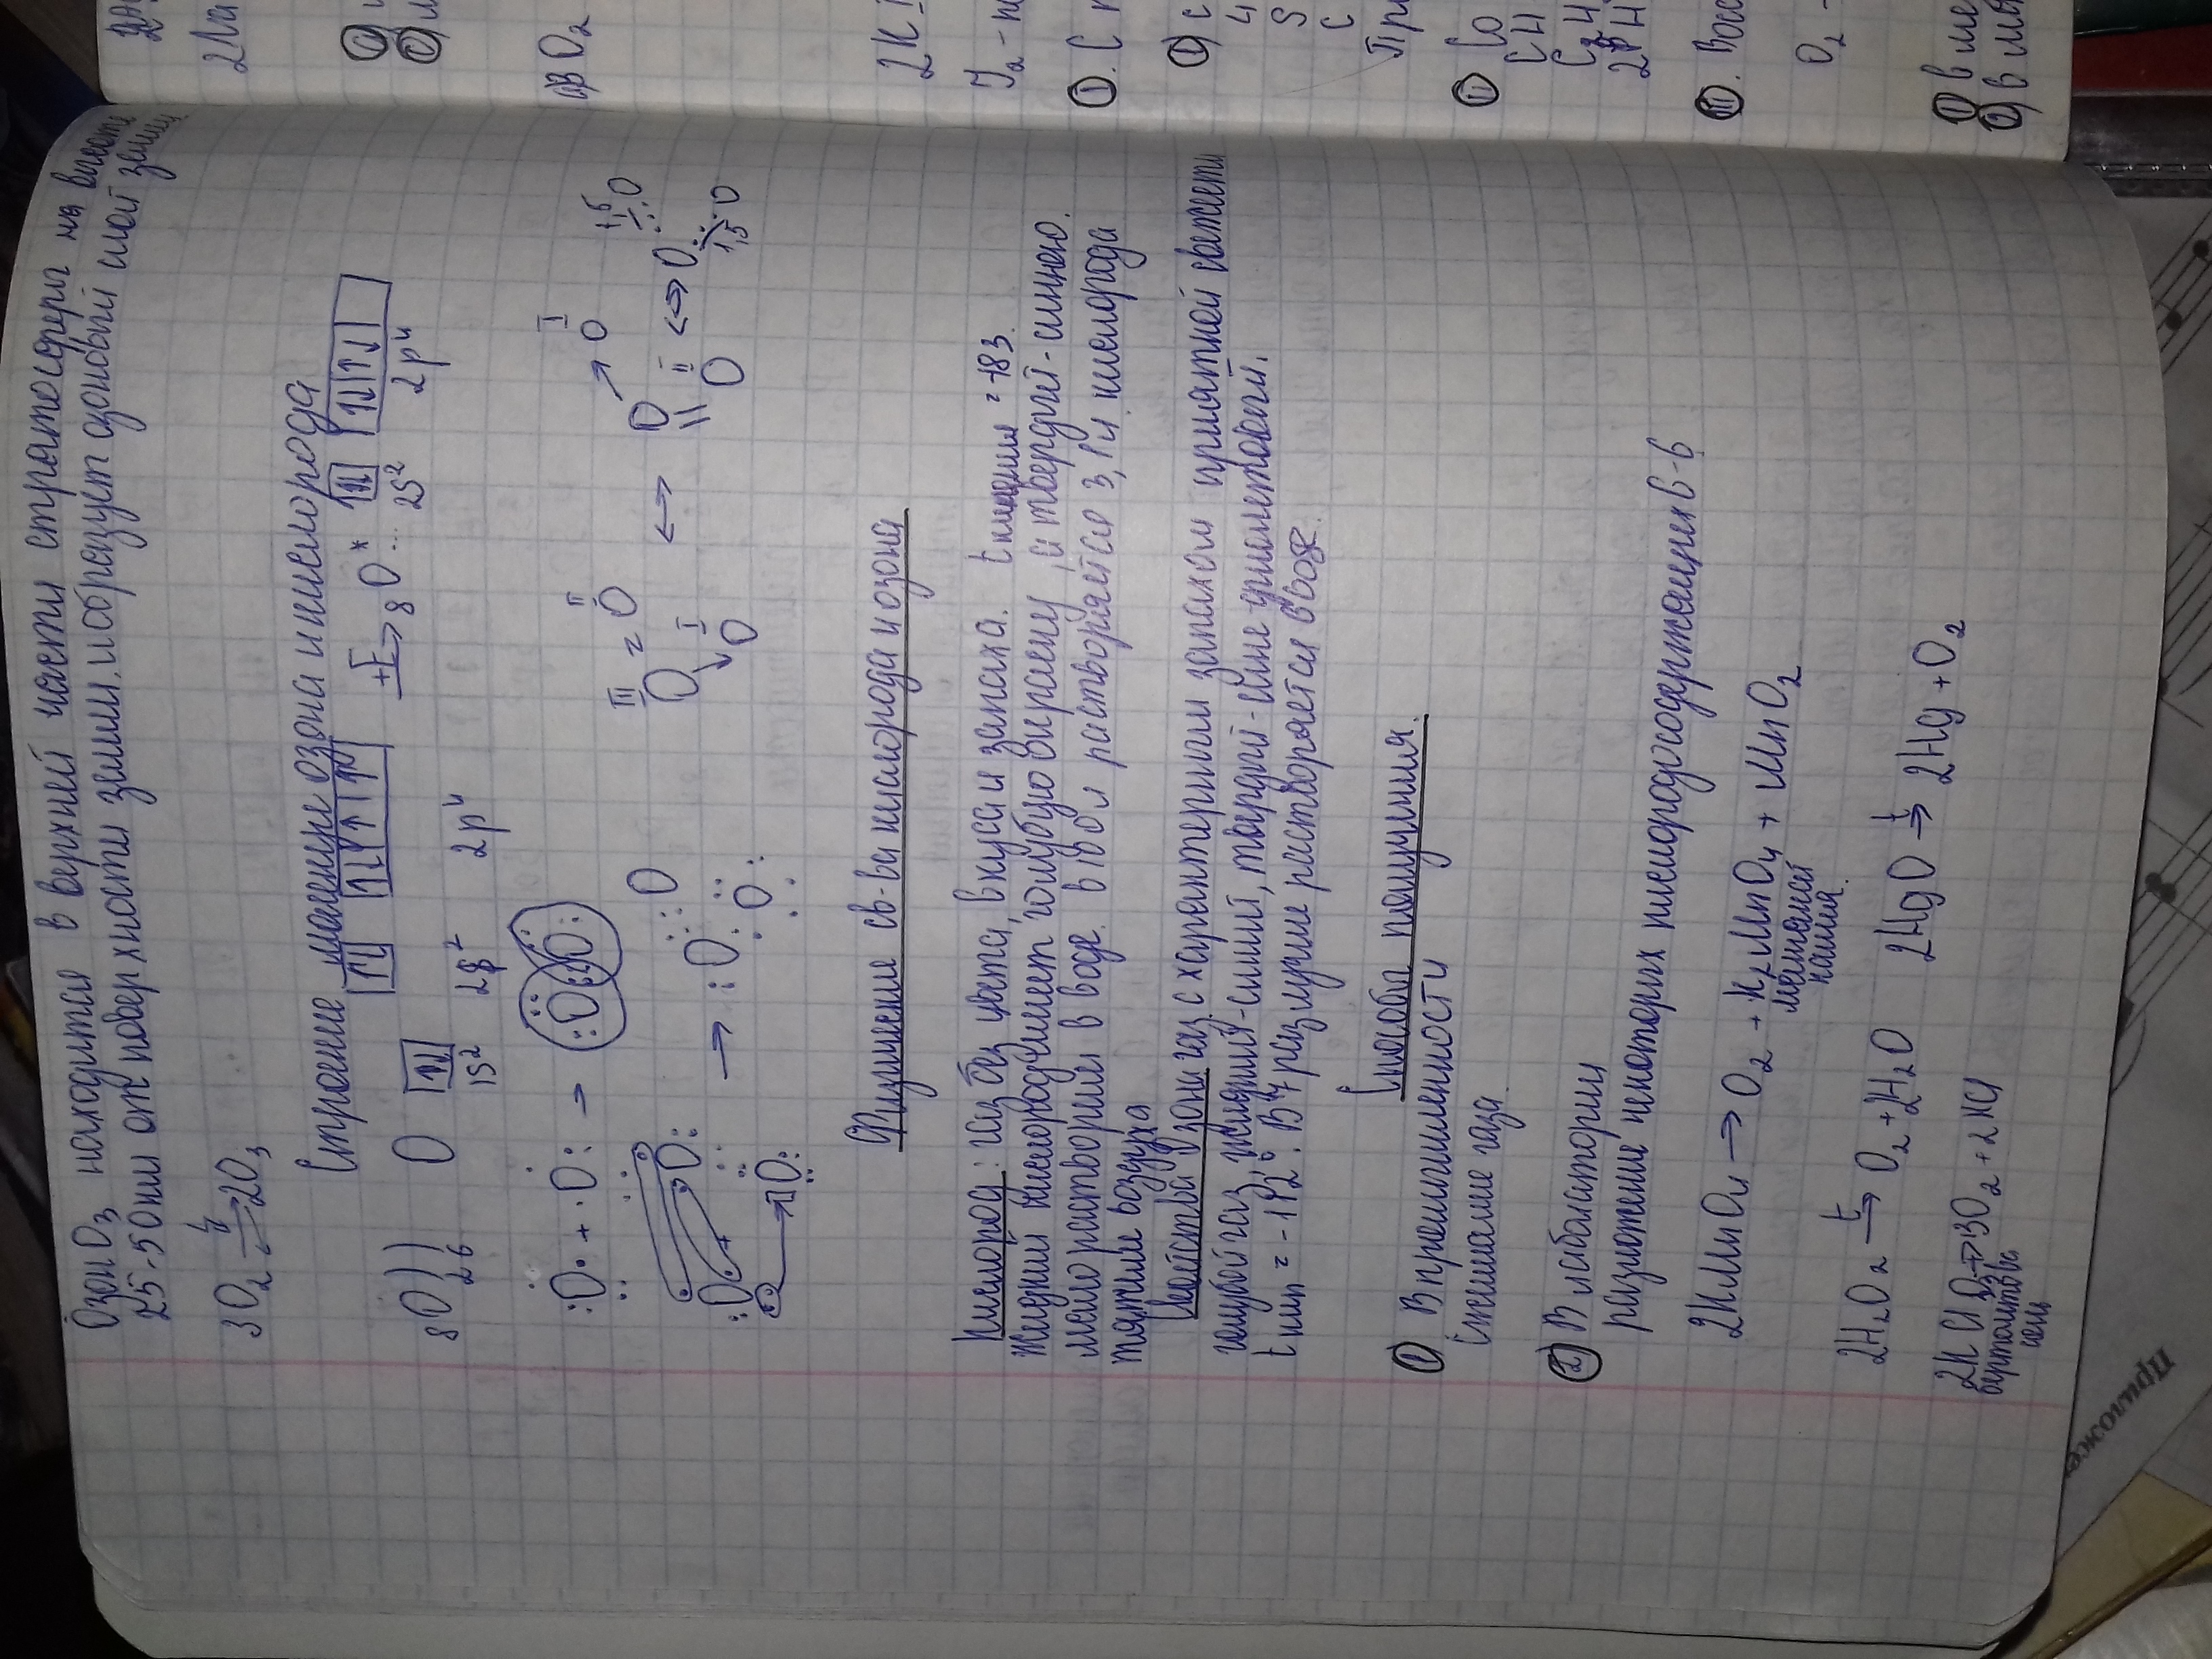 Озон O₃ находится в верхней части стратосферы на высоте
25-50км от поверхности земли. и образует озоновый слой земли
3O₂ ⇄ 2O₃
Строение молекул озона и кислорода
₈O))
2 6
O
1S²
2S²
2p⁴
+E → ₈O*...
2S²
2p⁴
:O· + ·O: → :O::O:
→ :O:O
:O:
III O = O II
O I
↔
O → O I
O II
↔ O
1,5
O
1,5
O
Физические св-ва кислорода и озона
Кислород: газ без цвета, вкуса и запаха. t кипения = -183.
Жидкий кислород имеет голубую окраску, а твердый-синюю.
мало растворим в воде. в 100 л растворяется 3,1 л кислорода
тяжелее воздуха
Свойства Озона газ с характерным запахом приятной свежести
голубой газ, жидкий-синий, твердый-темно фиолетовый.
t кип = -112. В 7 раз лучше растворяется в воде.
Способы получения.
① В промышленности
Сжижение газа.
② В лаборатории
разложение некоторых кислородсодержащих в-в
2KMnO₄ → O₂ + K₂MnO₄ + MnO₂
калия.
2H₂O₂ t→ O₂ + 2H₂O
2HgO t→ 2Hg + O₂
2KClO₃ → 3O₂ + 2KCl
бертолетова
соль
2Na
O₂
2K
① С
①
4
S
C
При
C₂H
Вос
O₂ -
① в
② в
Прилож